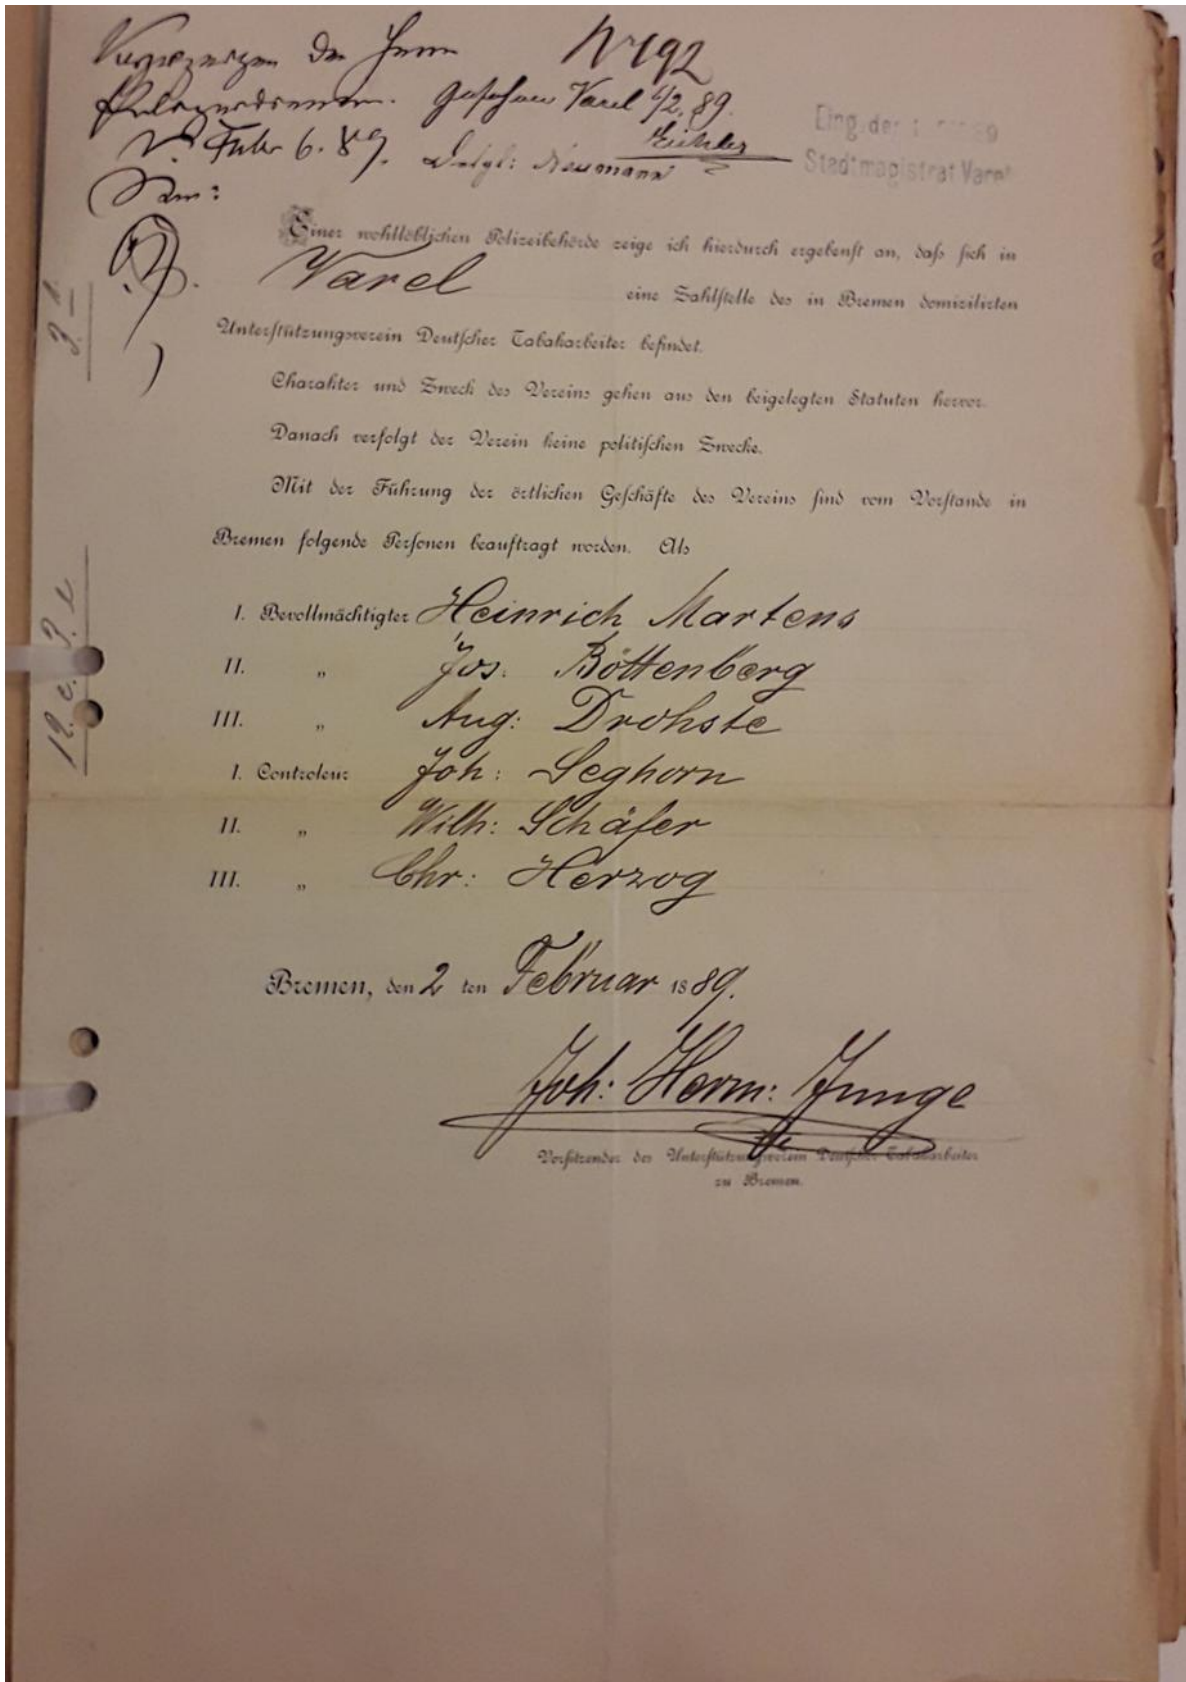 Vorzuzeigen den Herrn
No 192
Gesehen Varel 6/2. 89.
V. Febr 6. 89.
Eichler
Dsgl: Neumann
Eing. der
Stadtmagistrat Varel
Einer wohllöblichen Polizeibehörde zeige ich hierdurch ergebenſt an, daſs ſich in
Varel eine Zahlſtelle des in Bremen domizilirten
Unterſtützungsverein Deutſcher Tabakarbeiter befindet.
Charakter und Zweck des Vereins gehen aus den beigelegten Statuten hervor.
Danach verfolgt der Verein keine politiſchen Zwecke.
Mit der Führung der örtlichen Geſchäfte des Vereins ſind vom Vorſtande in
Bremen folgende Perſonen beauftragt worden. Als
I. Bevollmächtigter Heinrich Martens
II. „ Jos. Böttenberg
III. „ Aug: Drohste
I. Controleur Joh: Seghorn
II. „ Wilh: Schäfer
III. „ Chr: Herzog
Bremen, den 2 ten Februar 1889.
Joh: Herm: Junge
Vorſitzender des Unterſtützungsverein Deutſcher Tabakarbeiter
zu Bremen.